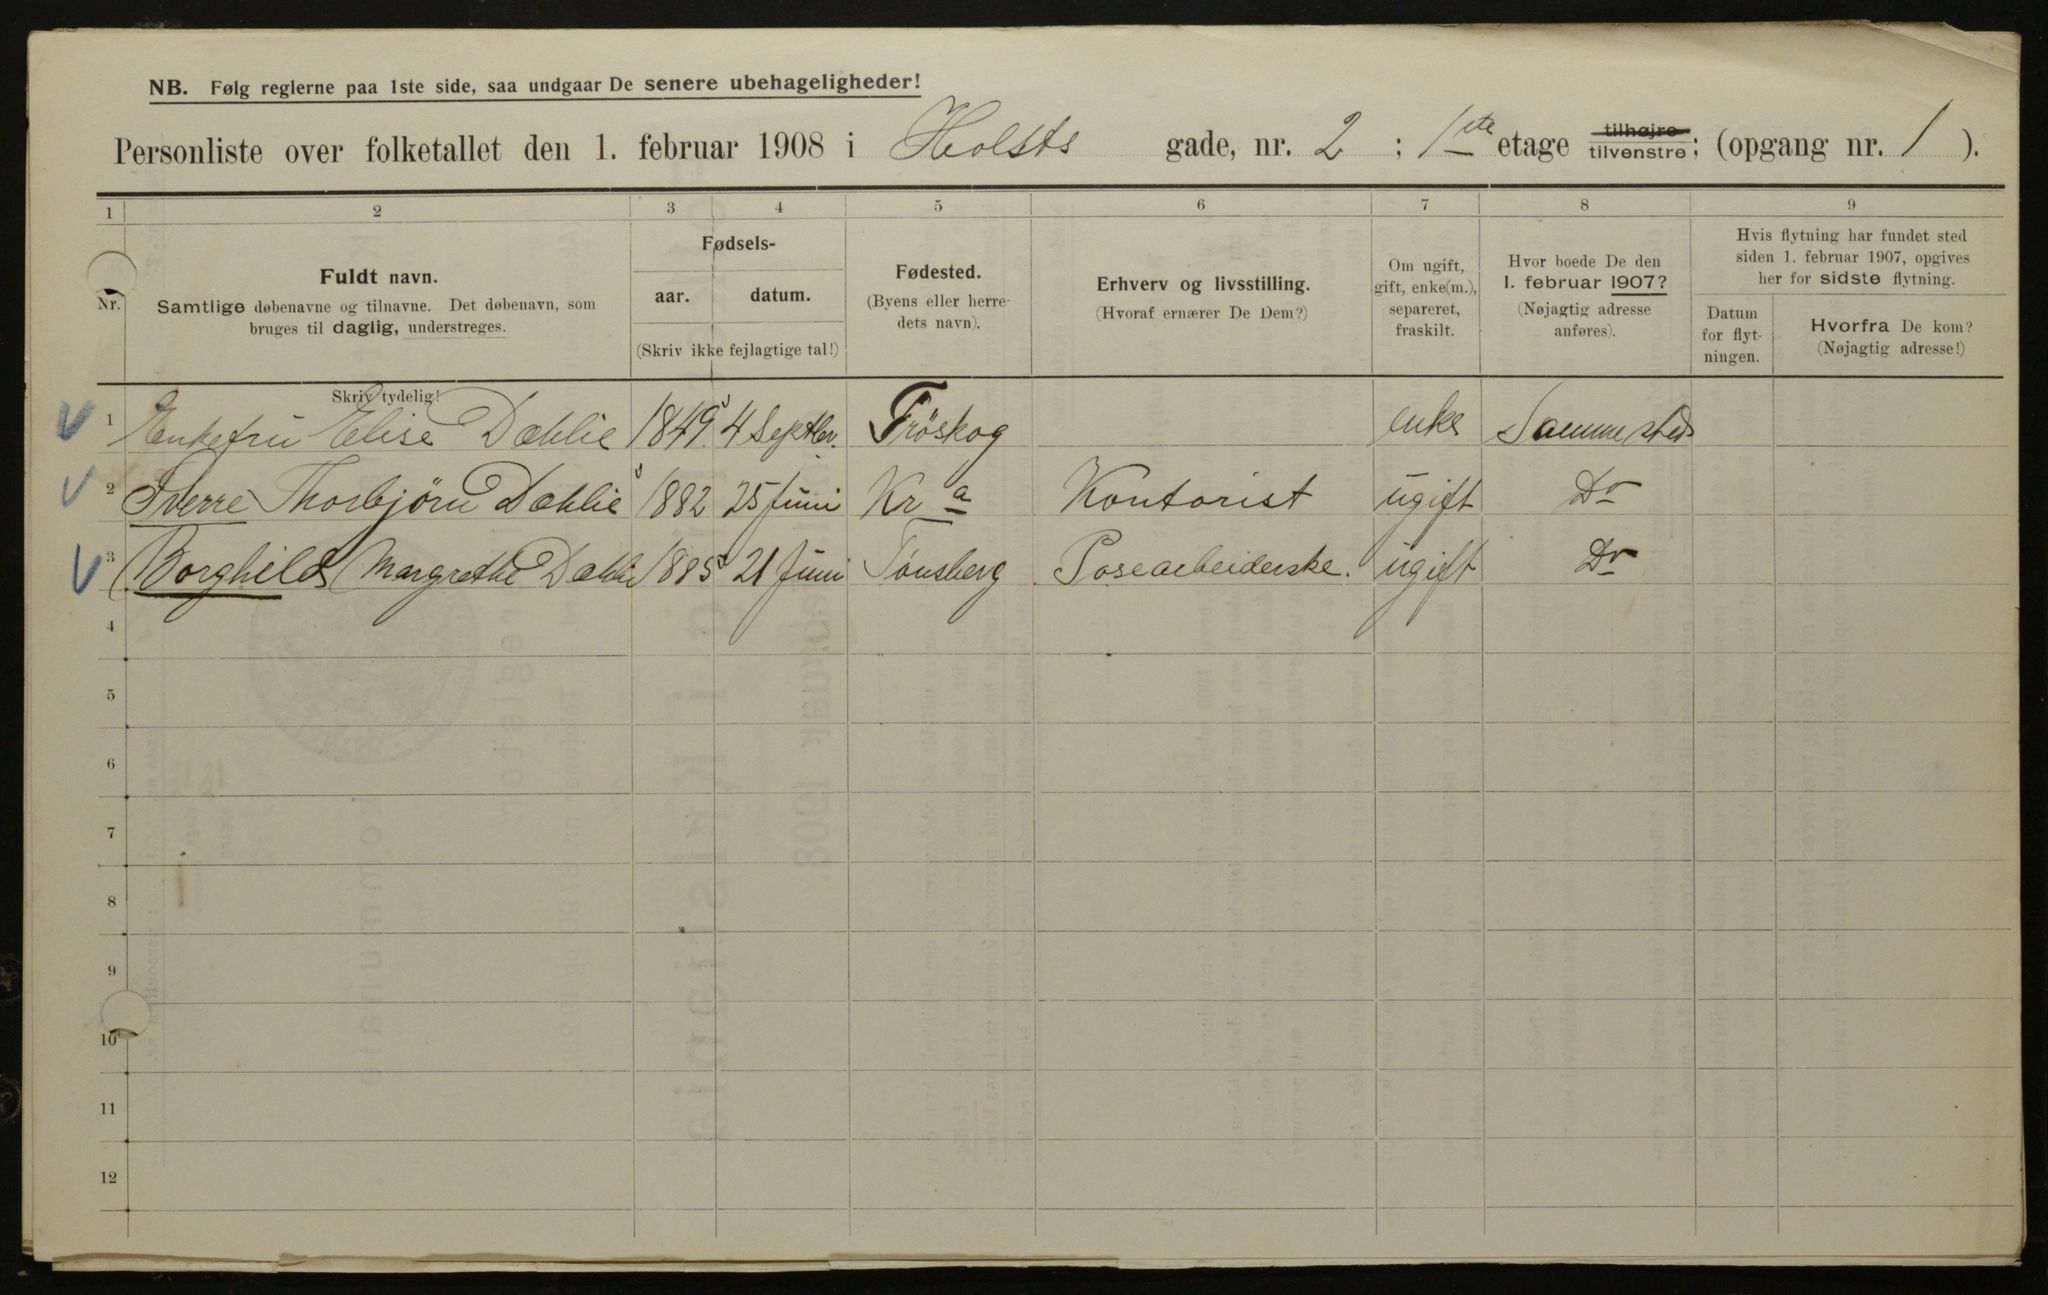 NB. Følg reglerne paa 1ste side, saa undgaar De senere ubehageligheder!
Personliste over folketallet den 1. februar 1908 i Holsts gade, nr. 2 ; 1ste etage tilhøjre tilvenstre; (opgang nr. 1 ).
1 2 3 4 5 6 7 8 9
Nr.
Fuldt navn.
Samtlige døbenavne og tilnavne. Det døbenavn, som
bruges til daglig, understreges.
Fødsels-
aar. datum.
(Skriv ikke fejlagtige tal!)
Fødested.
(Byens eller herre-
dets navn).
Erhverv og livsstilling.
(Hvoraf ernærer De Dem?)
Om ugift,
gift, enke(m.),
separeret,
fraskilt.
Hvor boede De den
1. februar 1907?
(Nøjagtig adresse
anføres).
Hvis flytning har fundet sted
siden 1. februar 1907, opgives
her for sidste flytning.
Datum
for flyt-
ningen.
Hvorfra De kom?
(Nøjagtig adresse!)
Skriv tydelig!
1 Enkefru Elise Dæhlie 1849 4 Septbr. Tröskog enke Samme sted
2 Sverre Thorbjörn Dæhlie 1882 25 Juni Kra Kontorist ugift Do
3 Borghild Margrethe Dæhlie 1885 21 Juni Tønsberg Posearbeiderske. ugift Do
4
5
6
7
8
9
10
11
12